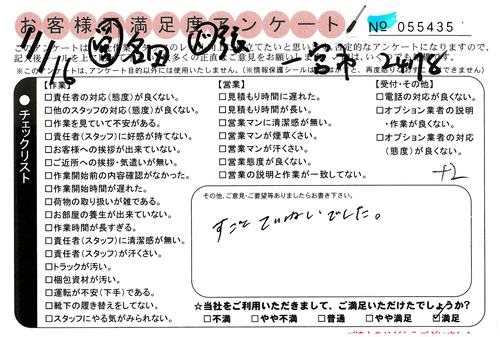 お客様満足度アンケート
№ 055435
11/16
一宮市 2478
【作業】
□責任者の対応(態度)が良くない。
□他のスタッフの対応(態度)が良くない。
□作業を見ていて不安がある。
□責任者(スタッフ)に好感が持てない。
□お客様への挨拶が出来ていない。
□ご近所への挨拶・気遣いが無い。
□作業開始前の内容確認がなかった。
□作業開始時間が遅れた。
□荷物の取り扱いが雑である。
□お部屋の養生が出来ていない。
□作業時間が長すぎる。
□責任者(スタッフ)に清潔感が無い。
□責任者(スタッフ)が汗さい。
□トラックが汚い。
□梱包資材が汚い。
□運転が不安(下手)である。
□靴下の履き替えをしてない。
□スタッフにやる気がみられない。
【営業】
□見積もり時間に遅れた。
□見積もり時間が長い。
□営業マンに清潔感が無い。
□営業マンが煙草くさい。
□営業マンが汗さい。
□営業態度が良くない。
□営業の説明と作業が一致してない。
【受付・その他】
□電話の対応が良くない。
□オプション業者の説明
・作業が良くない。
□オプション業者の対応
(態度)が良くない。
+2
チェックリスト
その他、ご意見・ご要望等ありましたらお書き下さい。
すごくていねいでした。
☆当社をご利用いただきまして、ご満足いただけたでしょうか?
□不満 □やや不満 □普通 □やや満足 ☑満足